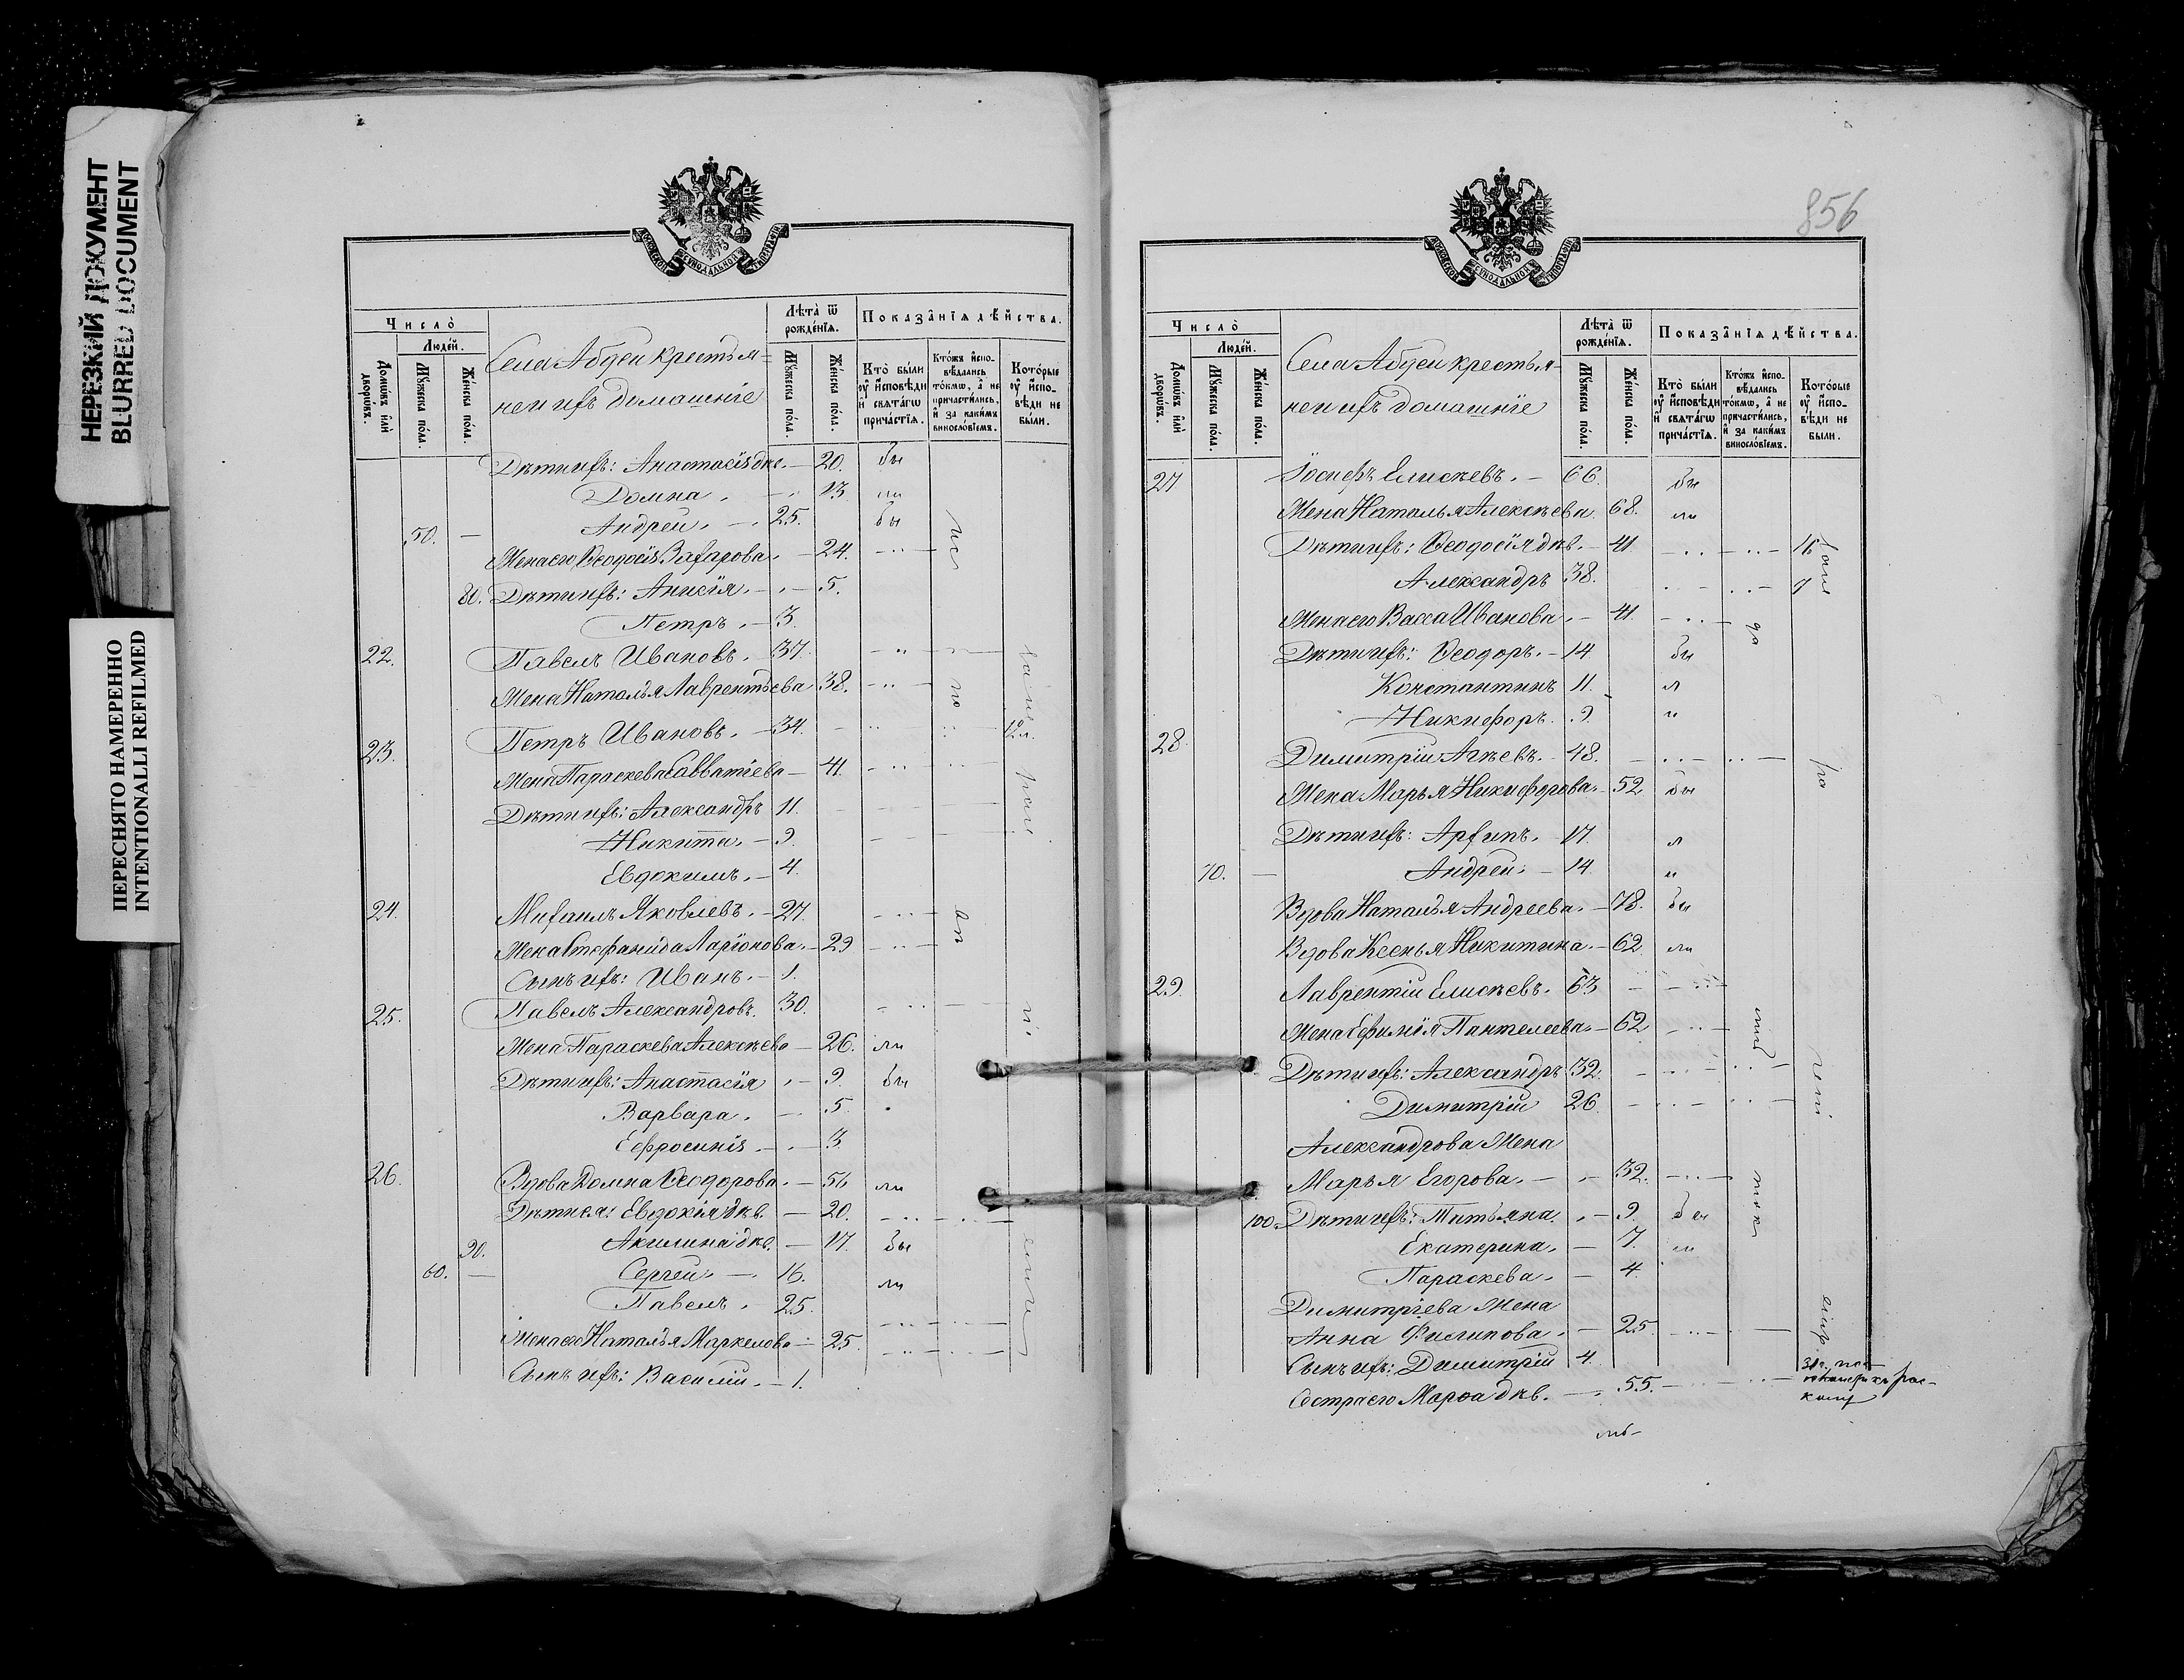 НЕРЕЗКИЙ ДОКУМЕНТ
BLURRED DOCUMENT
ПЕРЕСНЯТО НАМЕРЕННО
INTENTIONALLI REFILMED
Число̀
Людей.
Домѡвъ или дворѡвъ.
Мꙋжеска пола.
Женска пола.
Села Абдеи крестья-
не и ихъ домашніе
Лѣта ѿ рожденїѧ.
Мꙋжеска пола.
Женска пола.
Показанїѧ дѣйства.
Кто были оу исповѣди и свѧтагѡ причастїѧ.
Ктожъ исповѣдались токмѡ, а не причастились, и за какимъ винословїемъ.
Которые оу исповѣди не были.
Дѣти ихъ: Анастасія дѣв. — 20. бы
Домна. — 13. ли
50. — Андрей. — 25. бы
Жена его Ѳеодосія Захарова. — 24.
80. Дѣти ихъ: Анисія. — 5.
Петръ. — 3.
22. Павелъ Ивановъ. — 37.
Жена Наталья Лаврентьева 38.
23. Петръ Ивановъ. — 34. 12 л.
Жена Параскева Савватіева — 41.
Дѣти ихъ: Александръ 11.
Никита. — 9.
Евдокимъ. — 4.
24. Михаилъ Яковлевъ. — 27.
Жена Стефанида Ларіонова. — 29
Сынъ ихъ: Иванъ. — 1.
25. Павелъ Александровъ. 30.
Жена Параскева Алексѣева — 26. ли
Дѣти ихъ: Анастасія — 9. бы
Варвара. — 5.
Ефросинія — 3.
26. Вдова Домна Ѳеодорова. — 54 ли
Дѣти ея: Евдокія дѣв. — 20.
90. Акилина дѣв. — 17. бы
60. — Сергей. — 16. ли
Павелъ. 25.
Жена его Наталья Маркелова — 25.
Сынъ ихъ: Василій. — 1.
856
Число̀
Людей.
Домѡвъ или дворѡвъ.
Мꙋжеска пола.
Женска пола.
Села Абдеи крестья-
не и ихъ домашніе
Лѣта ѿ рожденїѧ.
Мꙋжеска пола.
Женска пола.
Показанїѧ дѣйства.
Кто были оу исповѣди и свѧтагѡ причастїѧ.
Ктожъ исповѣдались токмѡ, а не причастились, и за какимъ винословїемъ.
Которые оу исповѣди не были.
27 Іосифъ Елисѣевъ. — 66. бы
Жена Наталья Алексѣева 68. ли
Дѣти ихъ: Ѳеодосія дѣв. — 41 16
Александръ 38. 9
Жена его Васса Иванова. — 41.
Дѣти ихъ: Ѳеодоръ. — 14. бы
Константинъ 11. л
Никифоръ. 9. и
28. Димитрій Агѣевъ. — 48.
Жена Марья Никифорова. — 52. бы
Дѣти ихъ: Архипъ. — 17. л
70. — Андрей. — 14. и
Вдова Наталья Андреева. — 78. бы
Вдова Ксенья Никитина. — 62. ли
29. Лаврентій Елисѣевъ. 63
Жена Ефимія Пантелеева. — 62.
Дѣти ихъ: Александръ 32.
Димитрій 26.
Александрова жена
Марья Егорова. — 32.
100. Дѣти ихъ: Татьяна. — 9. бы
Екатерина. — 7. ли
Параскева. — 4.
Димитріева жена
Анна Филипова. — 25.
Сынъ ихъ: Димитрій 4.
Сестра его Марѳа дѣв. — 55.